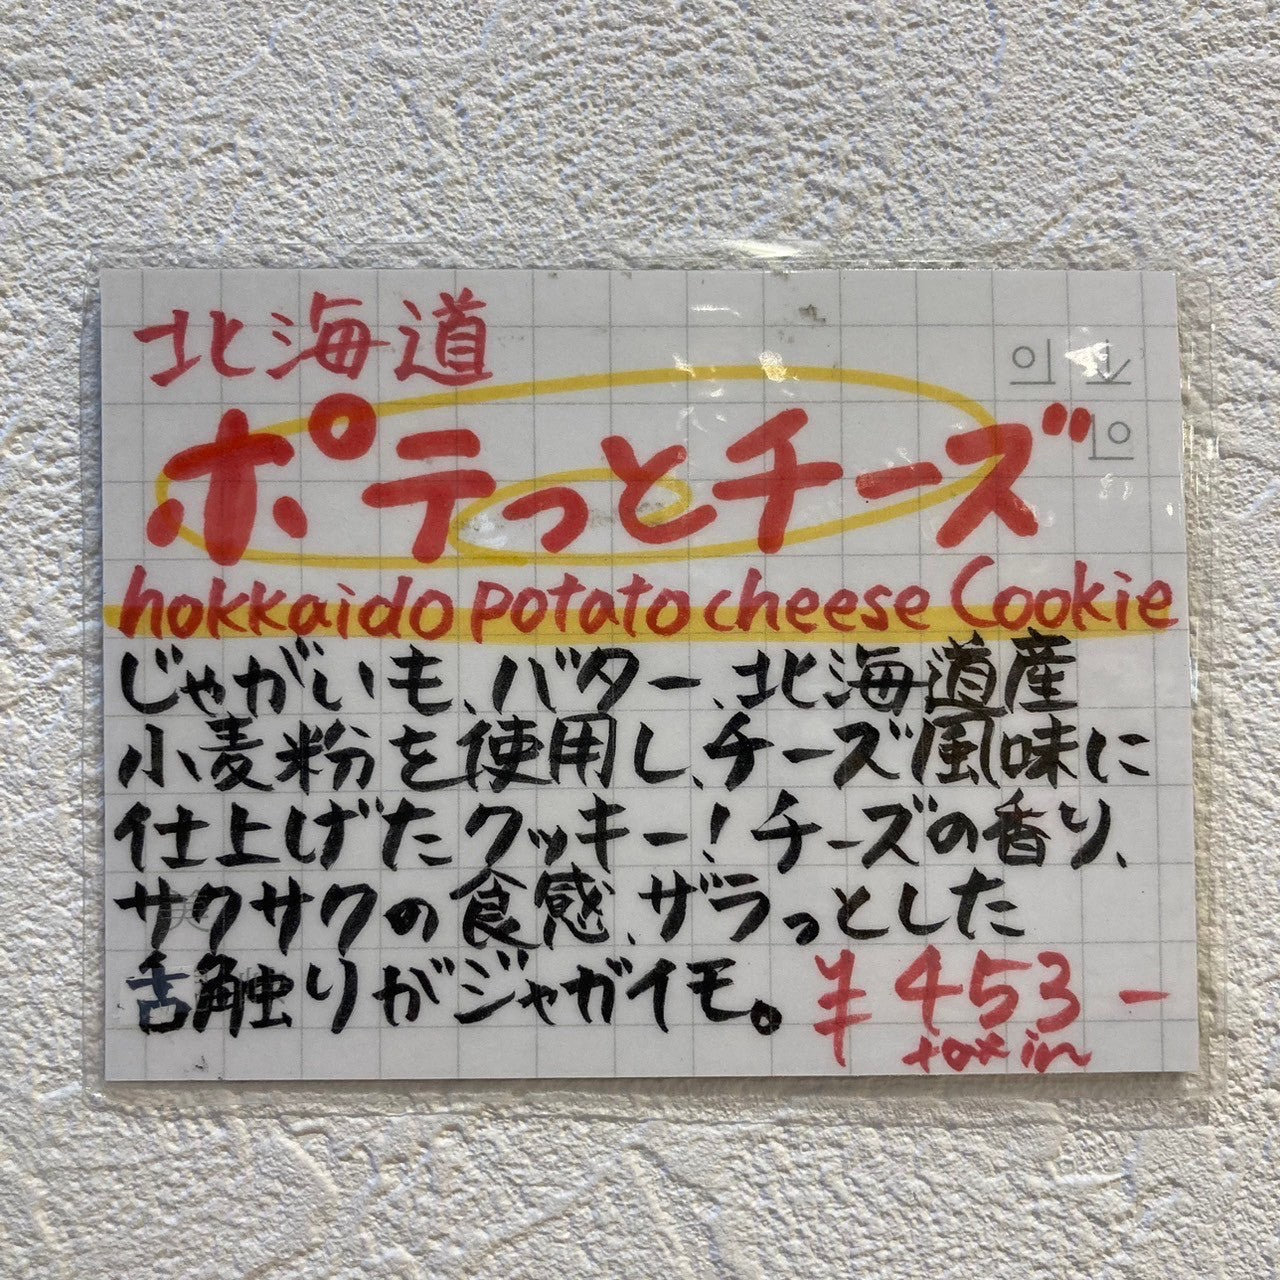 北海道
ポテっとチーズ
hokkaido potato cheese Cookie
じゃがいも、バター、北海道産
小麦粉を使用し、チーズ風味に
仕上げたクッキー!チーズの香り、
サクサクの食感、ザラっとした
舌触りがジャガイモ。
¥453-
tax in